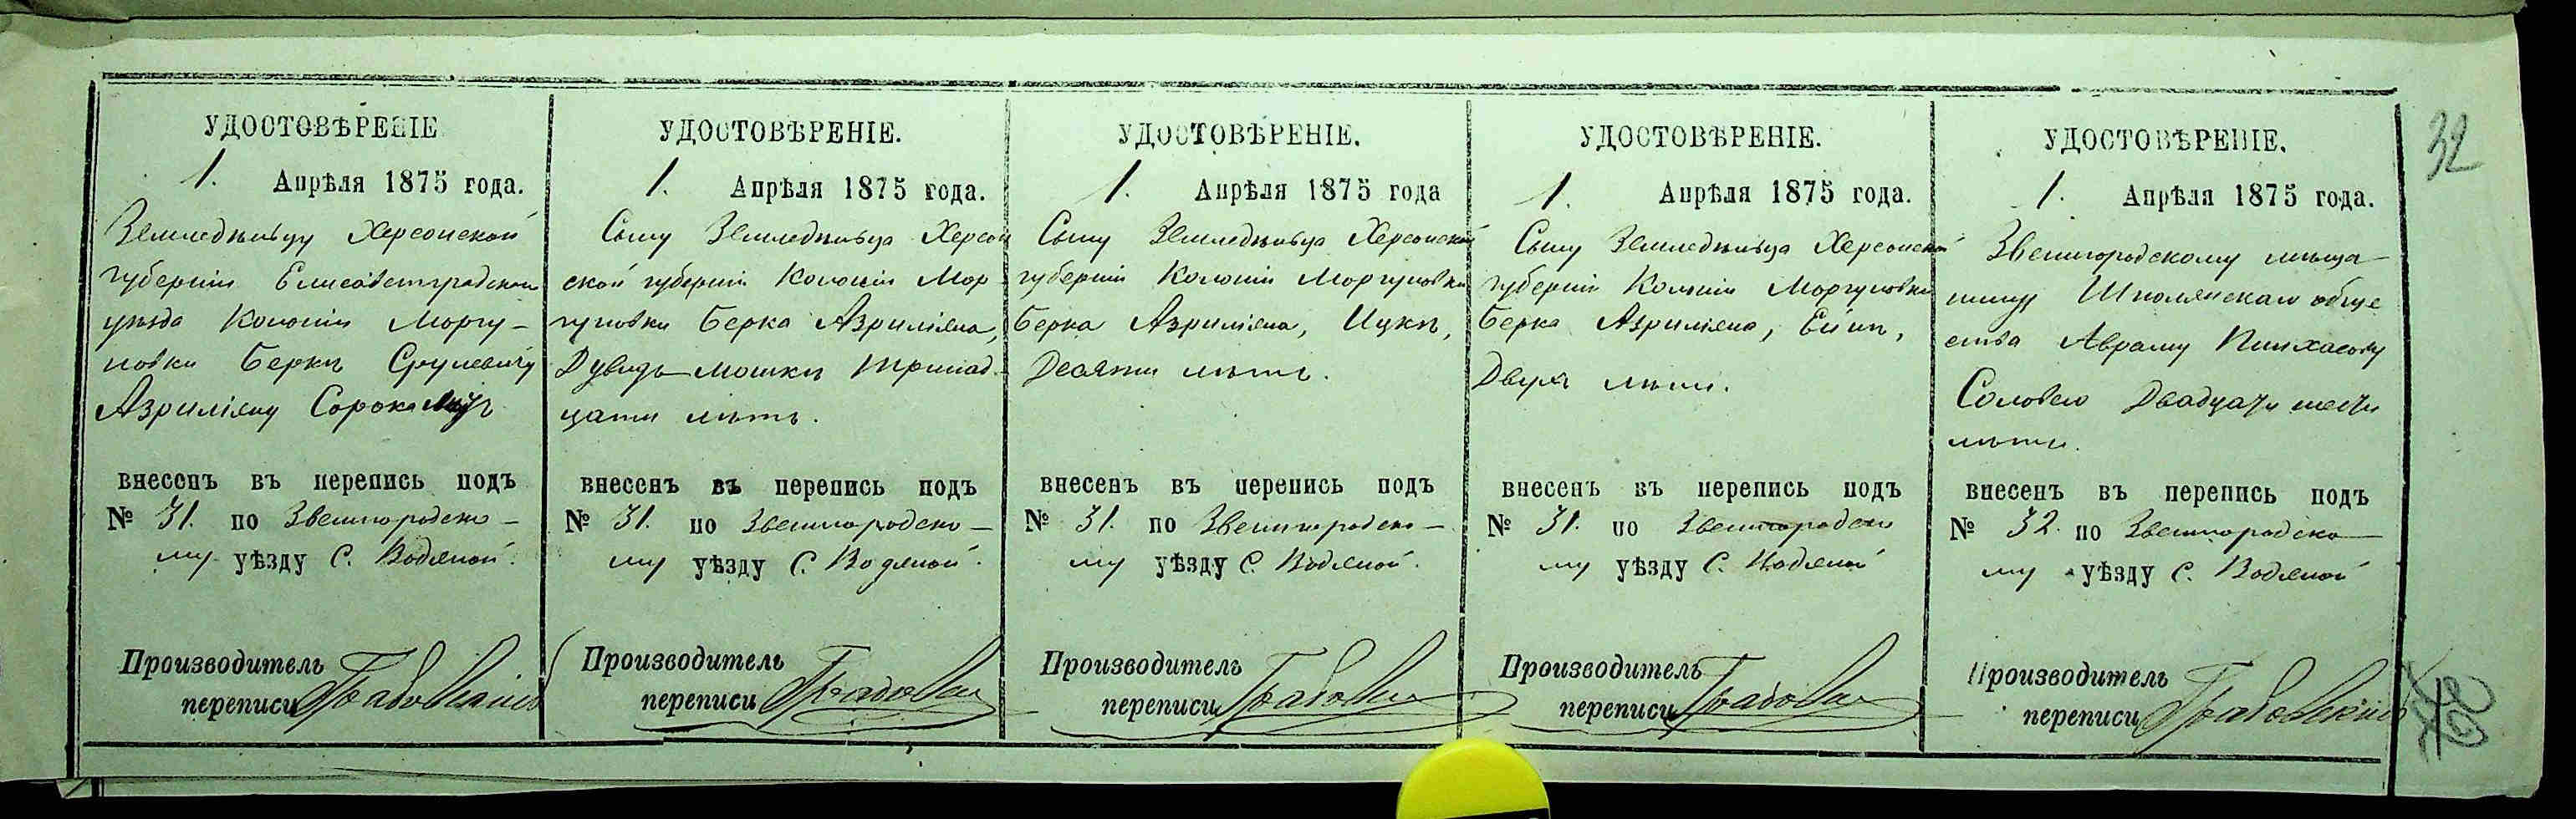 УДОСТОВѢРЕНІЕ
1. Апрѣля 1875 года.
Земледѣльцу Херсонской
губерніи Елисаветградскаго
уѣзда Колоніи Моргу-
новки Беркѣ Срулевичу
Азриліяну Сорока лѣтъ
внесенъ въ перепись подъ
№ 31. по Звенигородско-
му уѣзду С. Водяной.
Производитель
переписи Грабовскій
УДОСТОВѢРЕНІЕ.
1. Апрѣля 1875 года.
Сыну Земледѣльца Херсон
ской губерніи Колоніи Мор
гуновки Берка Азриліяна,
Дувидъ-Мошкѣ тринад-
цати лѣтъ.
внесенъ въ перепись подъ
№ 31. по Звенигородско-
му уѣзду С. Водяной.
Производитель
переписи
УДОСТОВѢРЕНІЕ.
1. Апрѣля 1875 года
Сыну Земледѣльца Херсонской
губерніи Колоніи Моргуновки
Берка Азриліяна, Ицкѣ,
Десяти лѣтъ.
внесенъ въ перепись подъ
№ 31. по Звенигородско-
му уѣзду С. Водяной.
Производитель
переписи
УДОСТОВѢРЕНІЕ.
1. Апрѣля 1875 года.
Сыну Земледѣльца Херсонской
губерніи Колоніи Моргуновки
Берка Азриліяна,
Двухъ лѣтъ.
внесенъ въ перепись подъ
№ 31. по Звенигородско
му уѣзду С. Водяной
Производитель
переписи
УДОСТОВѢРЕНІЕ.
1. Апрѣля 1875 года.
Звенигородскому мѣща-
нину Шполянскаго обще
ства Авраму Пинхасову
Соловею Двадцати шести
лѣтъ.
внесенъ въ перепись подъ
№ 32. по Звенигородско-
му уѣзду С. Водяной
Производитель
переписи Грабовскій
32